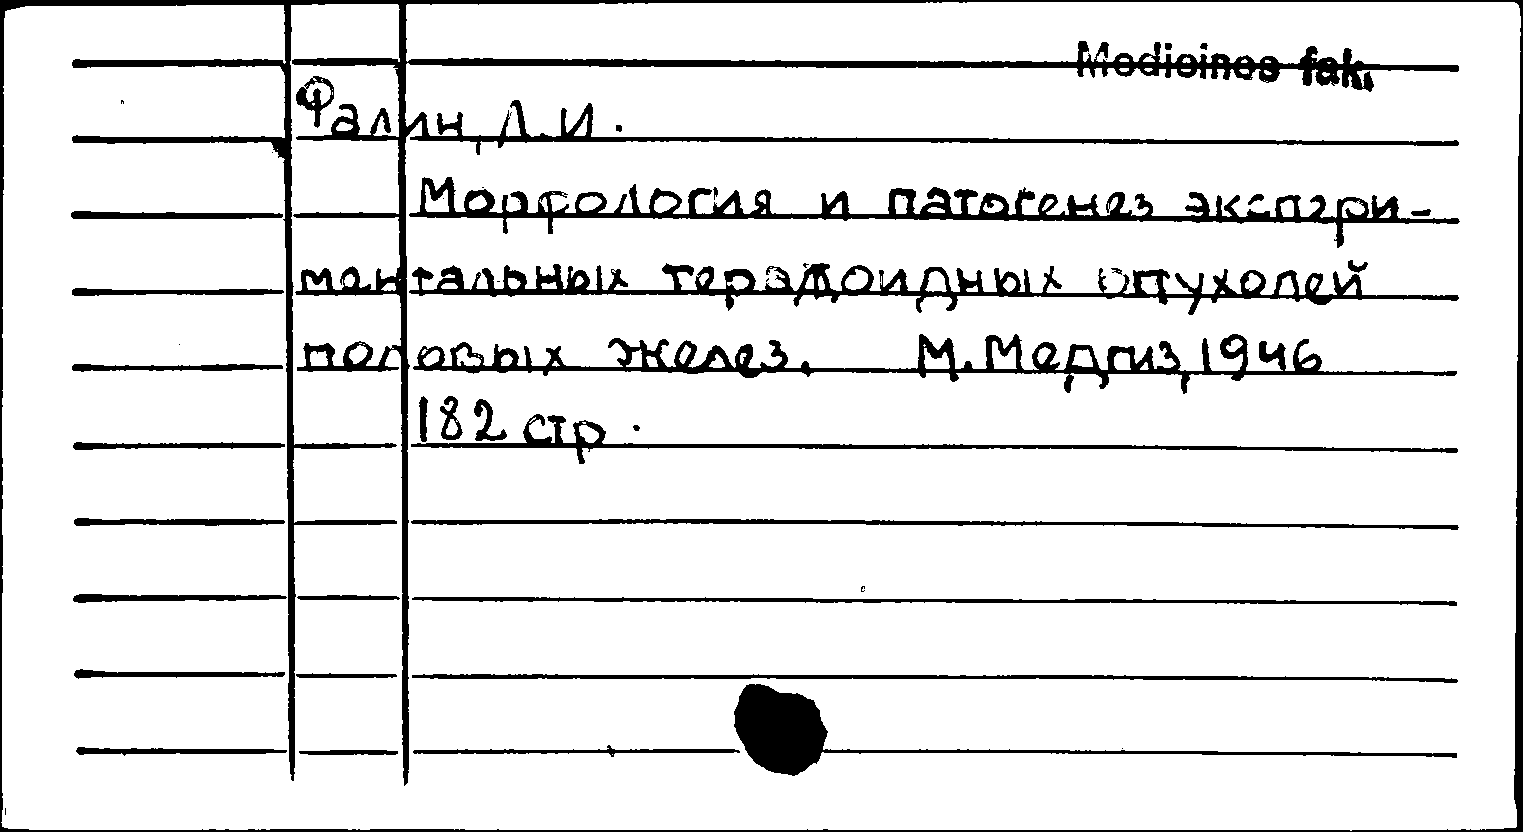 Medicinos fak.
Фалин, Л.И.
Морфология и патогенез экспери-
ментальных тератоидных опухолей
половых желез. М. Медгиз, 1946
182 стр.